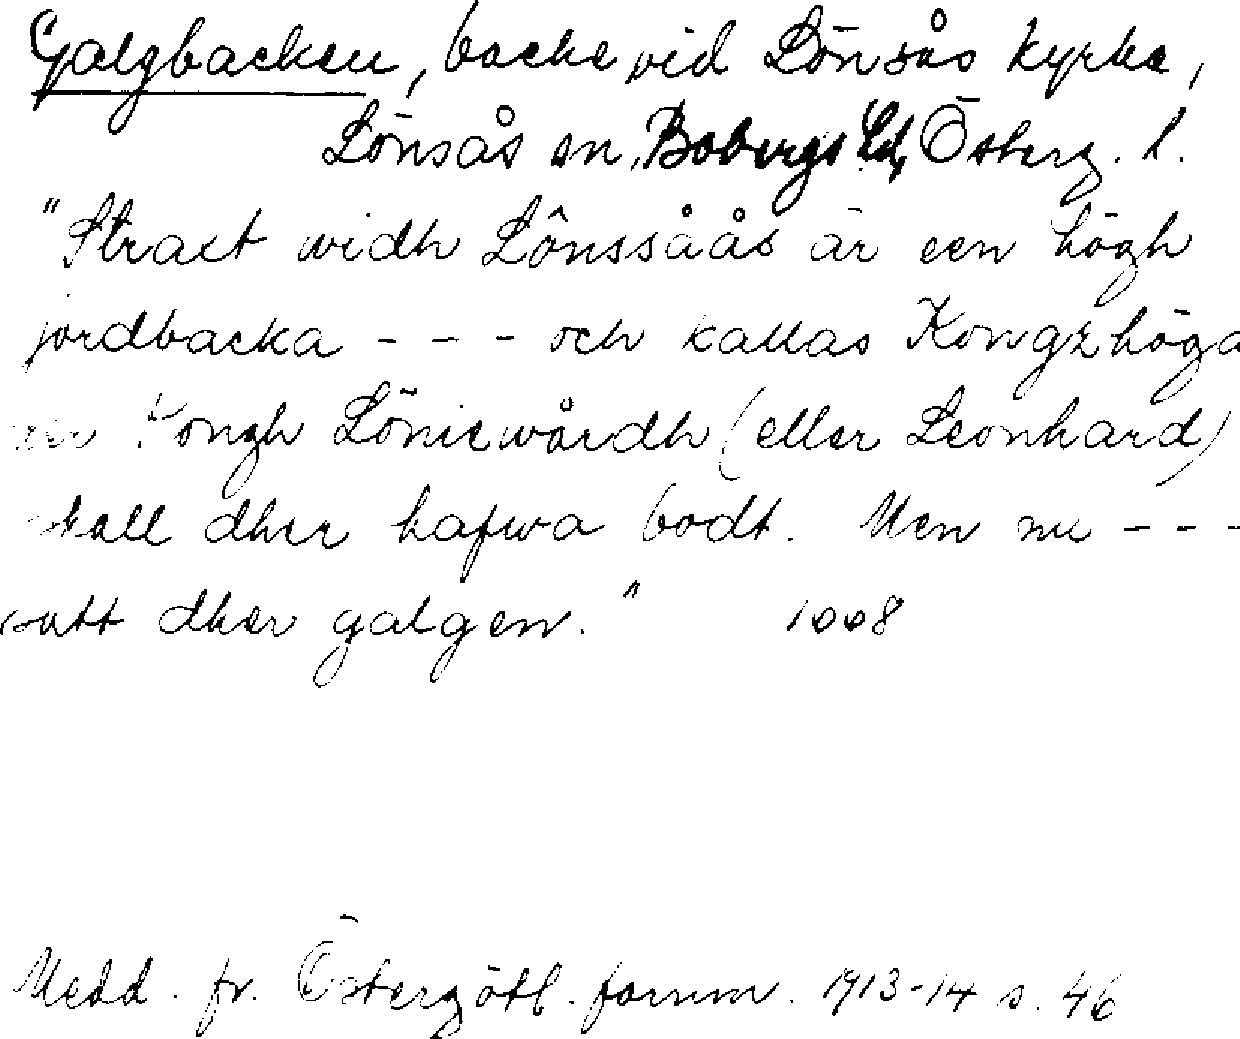 Galgbacken, backe vid Lönsås kyrka,
Lönsås sn, Bobergs hd, Österg. l.
"Straxt widh Lönssåås är een högh
jordbacka - - - och kallas Kongzhöga
Kongh Löniewårdh (eller Leonhard)
skall dher hafwa bodt. Men nu - - -
satt dher galgen." 1668
Medd. fr. Östergötl. fornm. 1913-14 s. 46